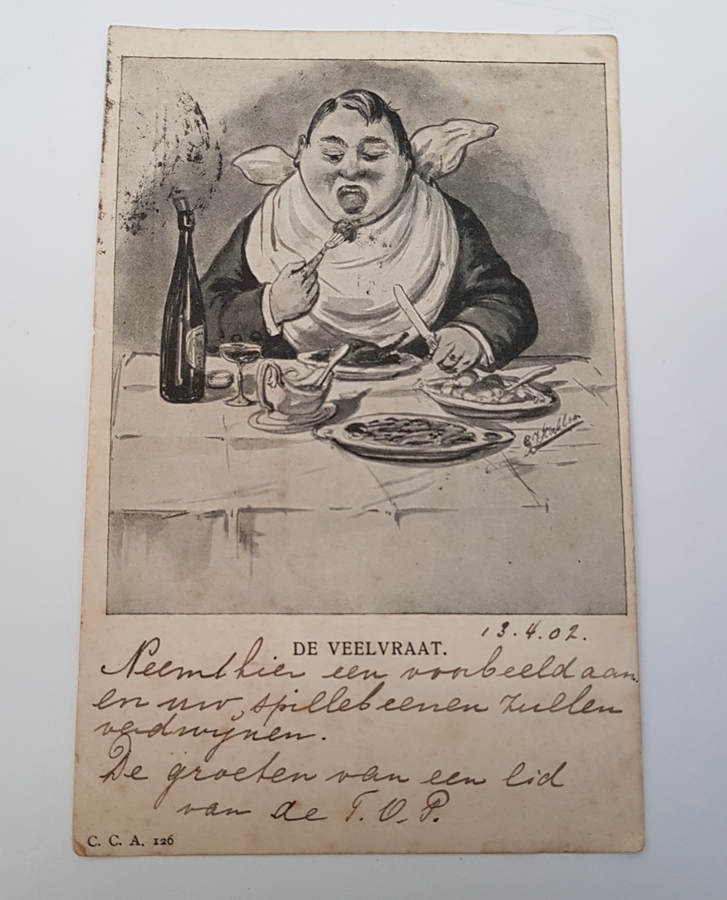 13.4.02.
DE VEELVRAAT.
Neemt hier een voorbeeld aan
en uw spillebeenen zullen
verdwijnen.
De groeten van een lid
van de T.O.P.
C. C. A. 126